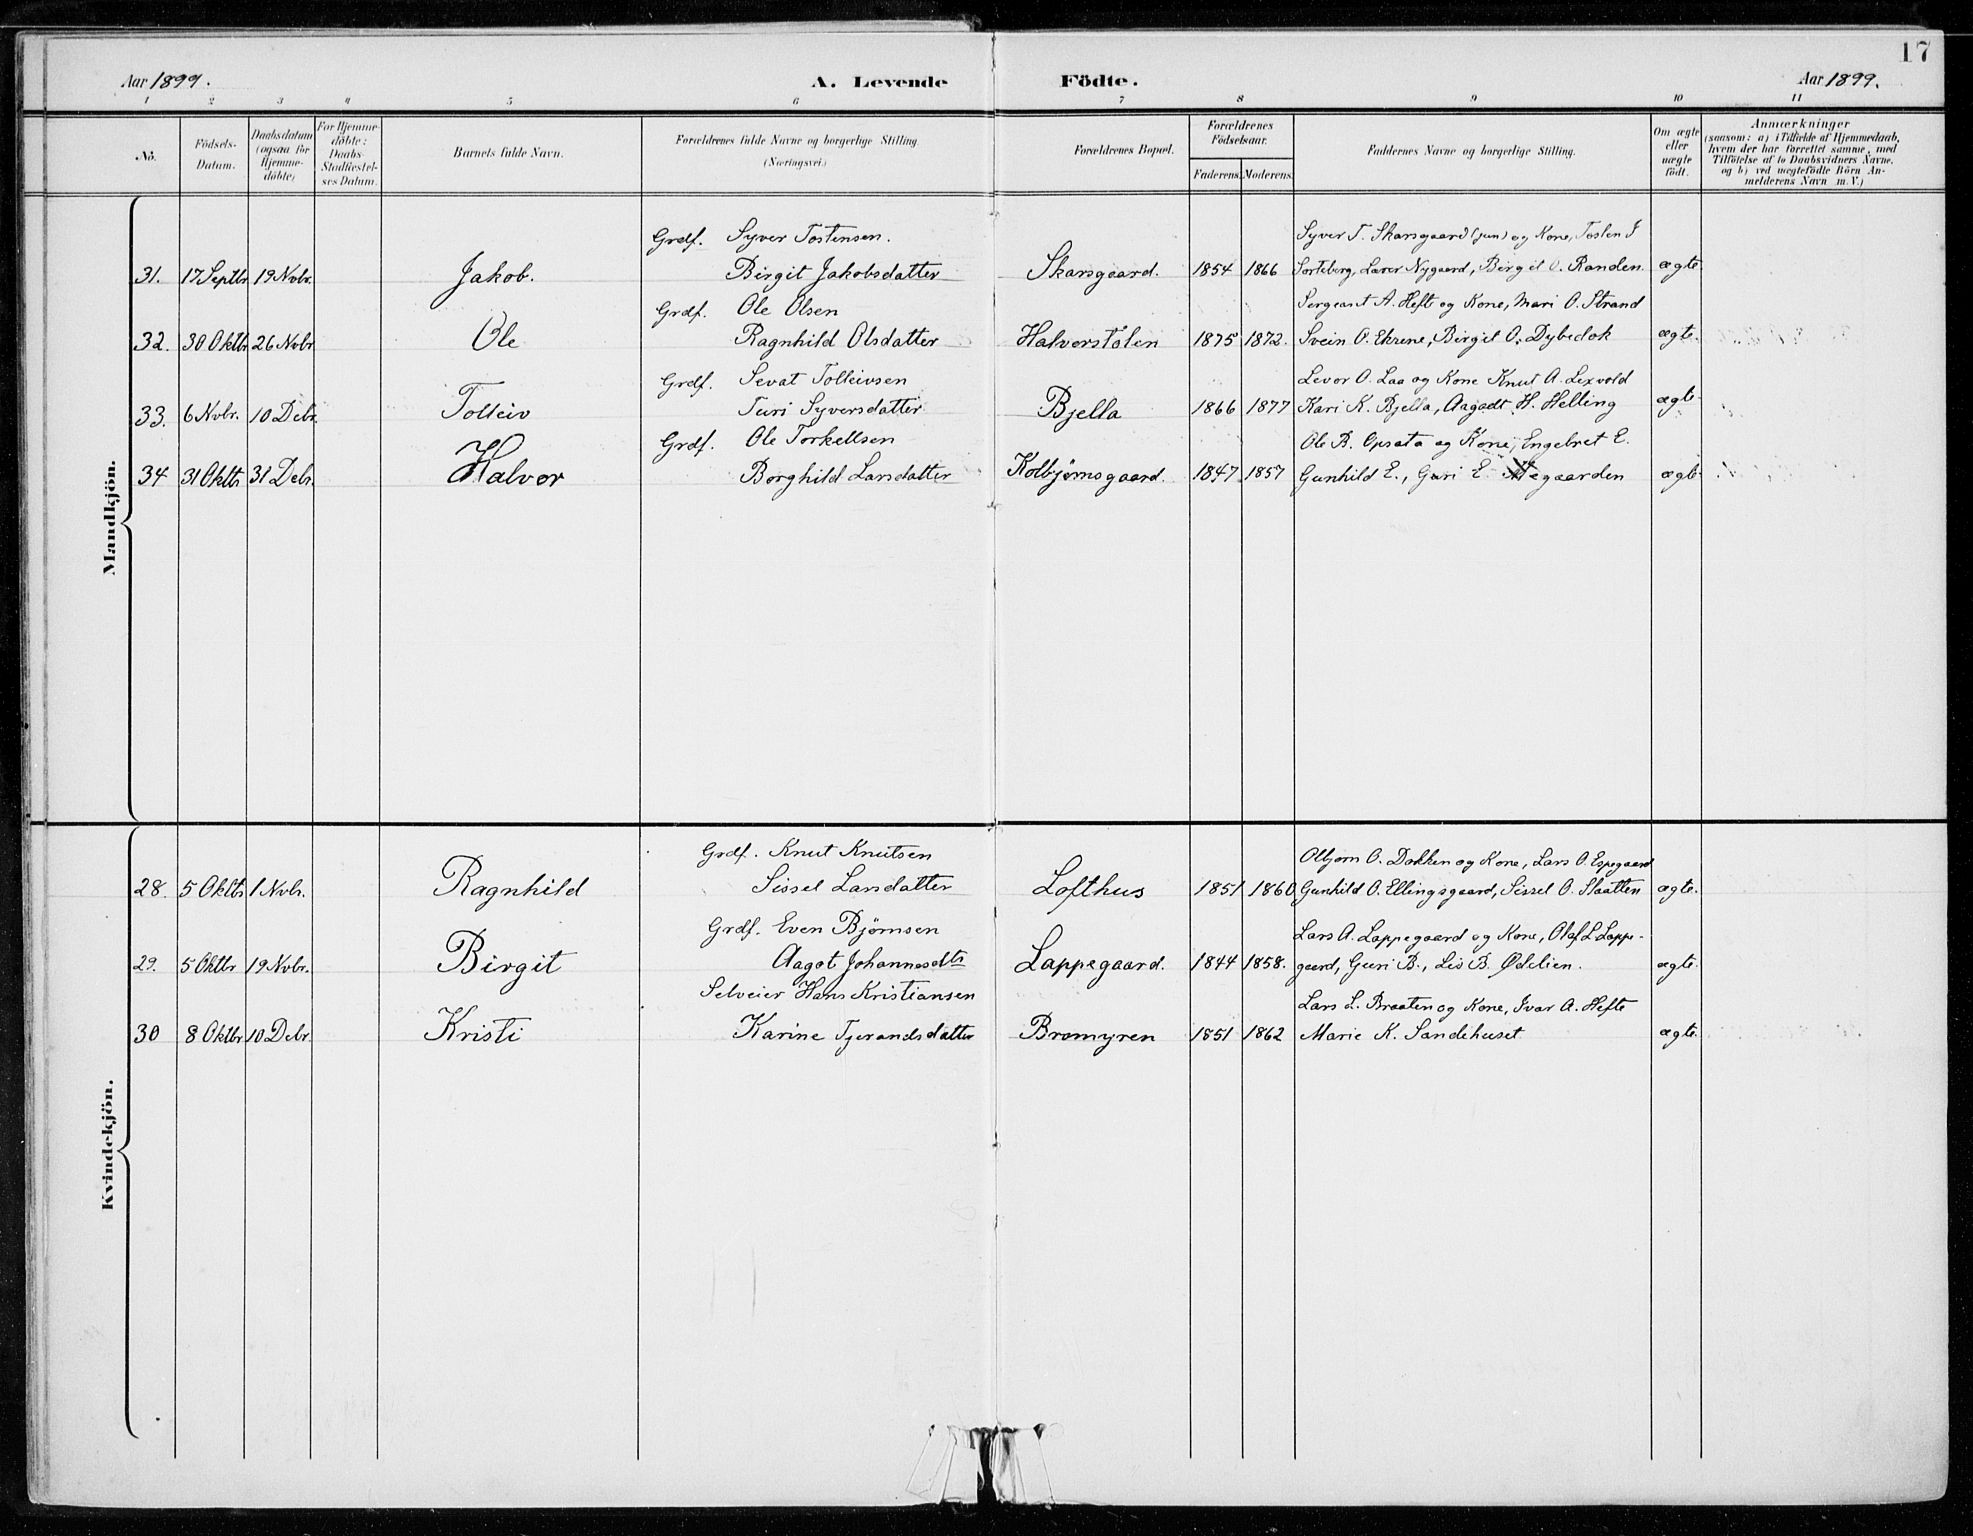 17
Aar 1899. A. Levende Födte. Aar 1899.
1 2 3 4 5 6 7 8 9 10 11
No. Födsels-Datum. Daabsdatum (ogsaa for Hjemme-döbte) For Hjemme-döbte: Daabs-Stadfæstel-ses Datum. Barnets fulde Navn. Forældrenes fulde Navne og borgerlige Stilling (Næringsvei.) Forældrenes Bopæl. Forældrenes Födselsaar. Faderens. Moderens. Faddernes Navne og borgerlige Stilling. Om ægte eller uægte födt. Anmærkninger (saasom: a) i Tilfælde af Hjemmedaab, hvem der har forrettet samme, med Tilföielse af to Daabsvidners Navne, og b) ved uægtefödte Börn An-melderens Navn m. V.)
Mandkjön.
Grdf. Syver Tostensen. Syver T. Skarsgaard (jun) og Kone, Tosten J
31. 17 Septbr 19 Novbr. Jakob. Birgit Jakobsdatter Skarsgaard. 1854 1866 Sorteberg, Laver Nygaard, Birgit O. Randen. ægte
Grdf. Ole Olsen Sergeant A. Hefte og Kone, Mari O. Strand
32. 30 Oktbr 26 Novbr Ole Ragnhild Olsdatter Halverstölen 1875 1872. Svein O. Ekrene, Birgit O. Dybedok ægte.
Grdf. Sevat Tolleivsen Levor O. Laa og Kone Knut A. Lexvold
33. 6 Novbr. 10 Debr. Tolleiv Turi Syversdatter Bjella 1866 1877 Kari K. Bjella, Aagadt H. Helling ægte
Grdf. Ole Torkellsen Ole B. Opsata og Kone, Engebret E.
34 31 Oktbr 31 Debr. Halvor Borghild Larsdatter Kolbjørnsgaard. 1847 1857 Gunhild E., Guri E. ægte
Kvindekjön.
Grdf. Knut Knutsen Olbjørn O. Dokken og Kone, Lars O. Espegaard
28. 5 Oktbr 1 Novbr. Ragnhild Sissel Larsdatter Lofthus 1851 1860 Gunhild O. Ellingsgaard, Sissel O. Slaatten ægte.
Grdf. Even Bjørnsen Lars A. Lappegaard og Kone, Olaf L Lappe-
29. 5 Oktbr 19 Novbr. Birgit Aagot Johannesdtr Lappegaard. 1844 1858. gaard, Guri B., Liv B. Ødelien. ægte.
Selveier Hans Kristiansen Lars L. Braaten og Kone, Ivar A. Hefte
30 8 Oktbr 10 Debr. Kristi Karine Tjerandsdatter Bromyren 1851 1862 Marie K. Sandehuset ægte.